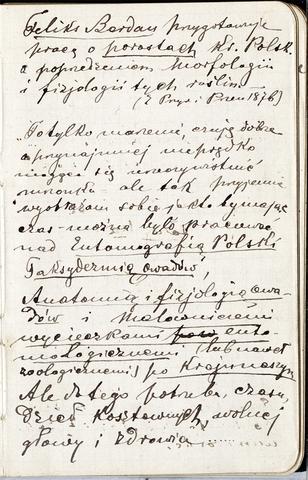 Feliks Berdau przygotowuje
pracę o porostach Kr. Polsk.
z poprzedzeniem Morfologii
i fizjologii tych roślin —
(z Przyr. i Przem 1876)
„To tylko marzenie, czuję dobrze
a przynajmniej nieprędko
mogące się urzeczywistnić
mrzonka — ale tak przyjemnie
wyobrażam sobie jakto by mając
czas — można było pracować
nad Entomografią Polski
Taksydermią owadów,
Anatomią i fizjologią owa-
dów i malowniczemi
wycieczkami ento-
mologicznemi (lub nawet
zoologicznemi) po Kraju naszym
Ale do tego potrzeba, czasu,
dzieł kosztownych, wolnej
głowy i zdrowia